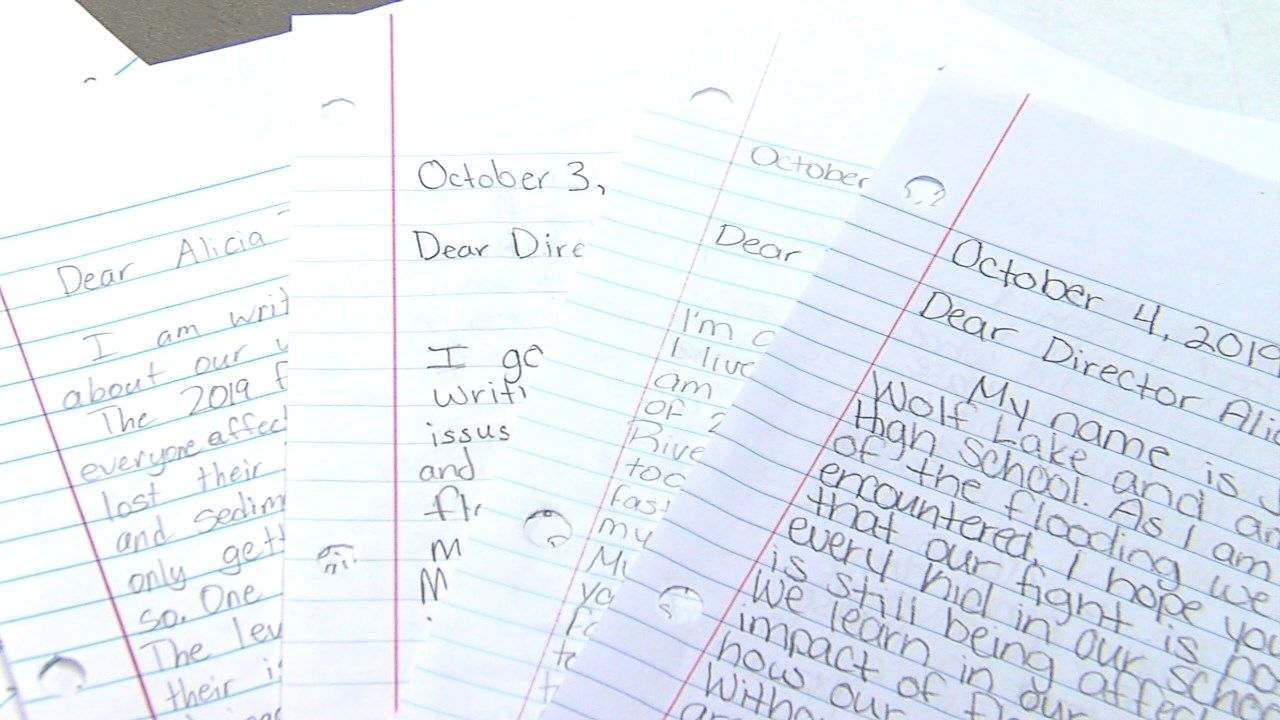 Dear Alicia
I am writ
about our
The 2019 f
everyone affec
lost their
and sedim
only gett
so. One
The lev
their i
October 3,
Dear Dire
I go
writi
issus
and
fl
M
M
October
Dear
I'm a
I live
am
of 2
Rive
too
fast
my
Mi
yo
fo
to
t
October 4, 2019
Dear Director Alic
My name is
Wolf Lake and an
High School. As I am
of the flooding we
encountered, I hope you
that our fight is
every kid in our schoo
is still being affec
We learn in our
impact of fl
how our
Witho
are